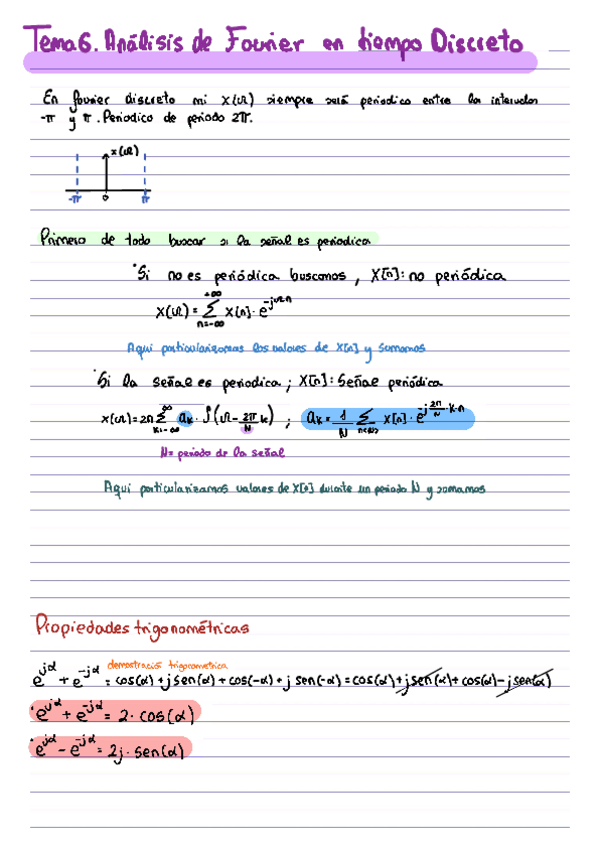 Tema 6. Análisis de Fourier en tiempo Discreto
En fourier discreto mi X(Ω) siempre será periodico entre los intervalos
-π y π. Periodico de periodo 2π.
x(Ω)
-π 0 π
Primero de todo buscar si la señal es periodica
· Si no es periódica buscamos, X[n]: no periódica
X(Ω) = Σ_{n=-∞}^{+∞} X[n] · e^{-jΩn}
Aqui particularizamos los valores de X[n] y sumamos
· Si la señal es periodica; X[n]: Señal periódica
X(Ω) = 2π Σ_{k=-∞}^{∞} ak · δ(Ω - 2π/N k) ; ak = 1/N Σ_{n=<N>} X[n] · e^{-j 2π/N · k·n}
N = periodo de la señal
Aqui particularizamos valores de X[n] durante un periodo N y sumamos
Propiedades trigonométricas
demostració trigonometrica
e^{jα} + e^{-jα} = cos(α) + j sen(α) + cos(-α) + j sen(-α) = cos(α) + j sen(α) + cos(α) - j sen(α)
· e^{jα} + e^{-jα} = 2 · cos(α)
· e^{jα} - e^{-jα} = 2j · sen(α)